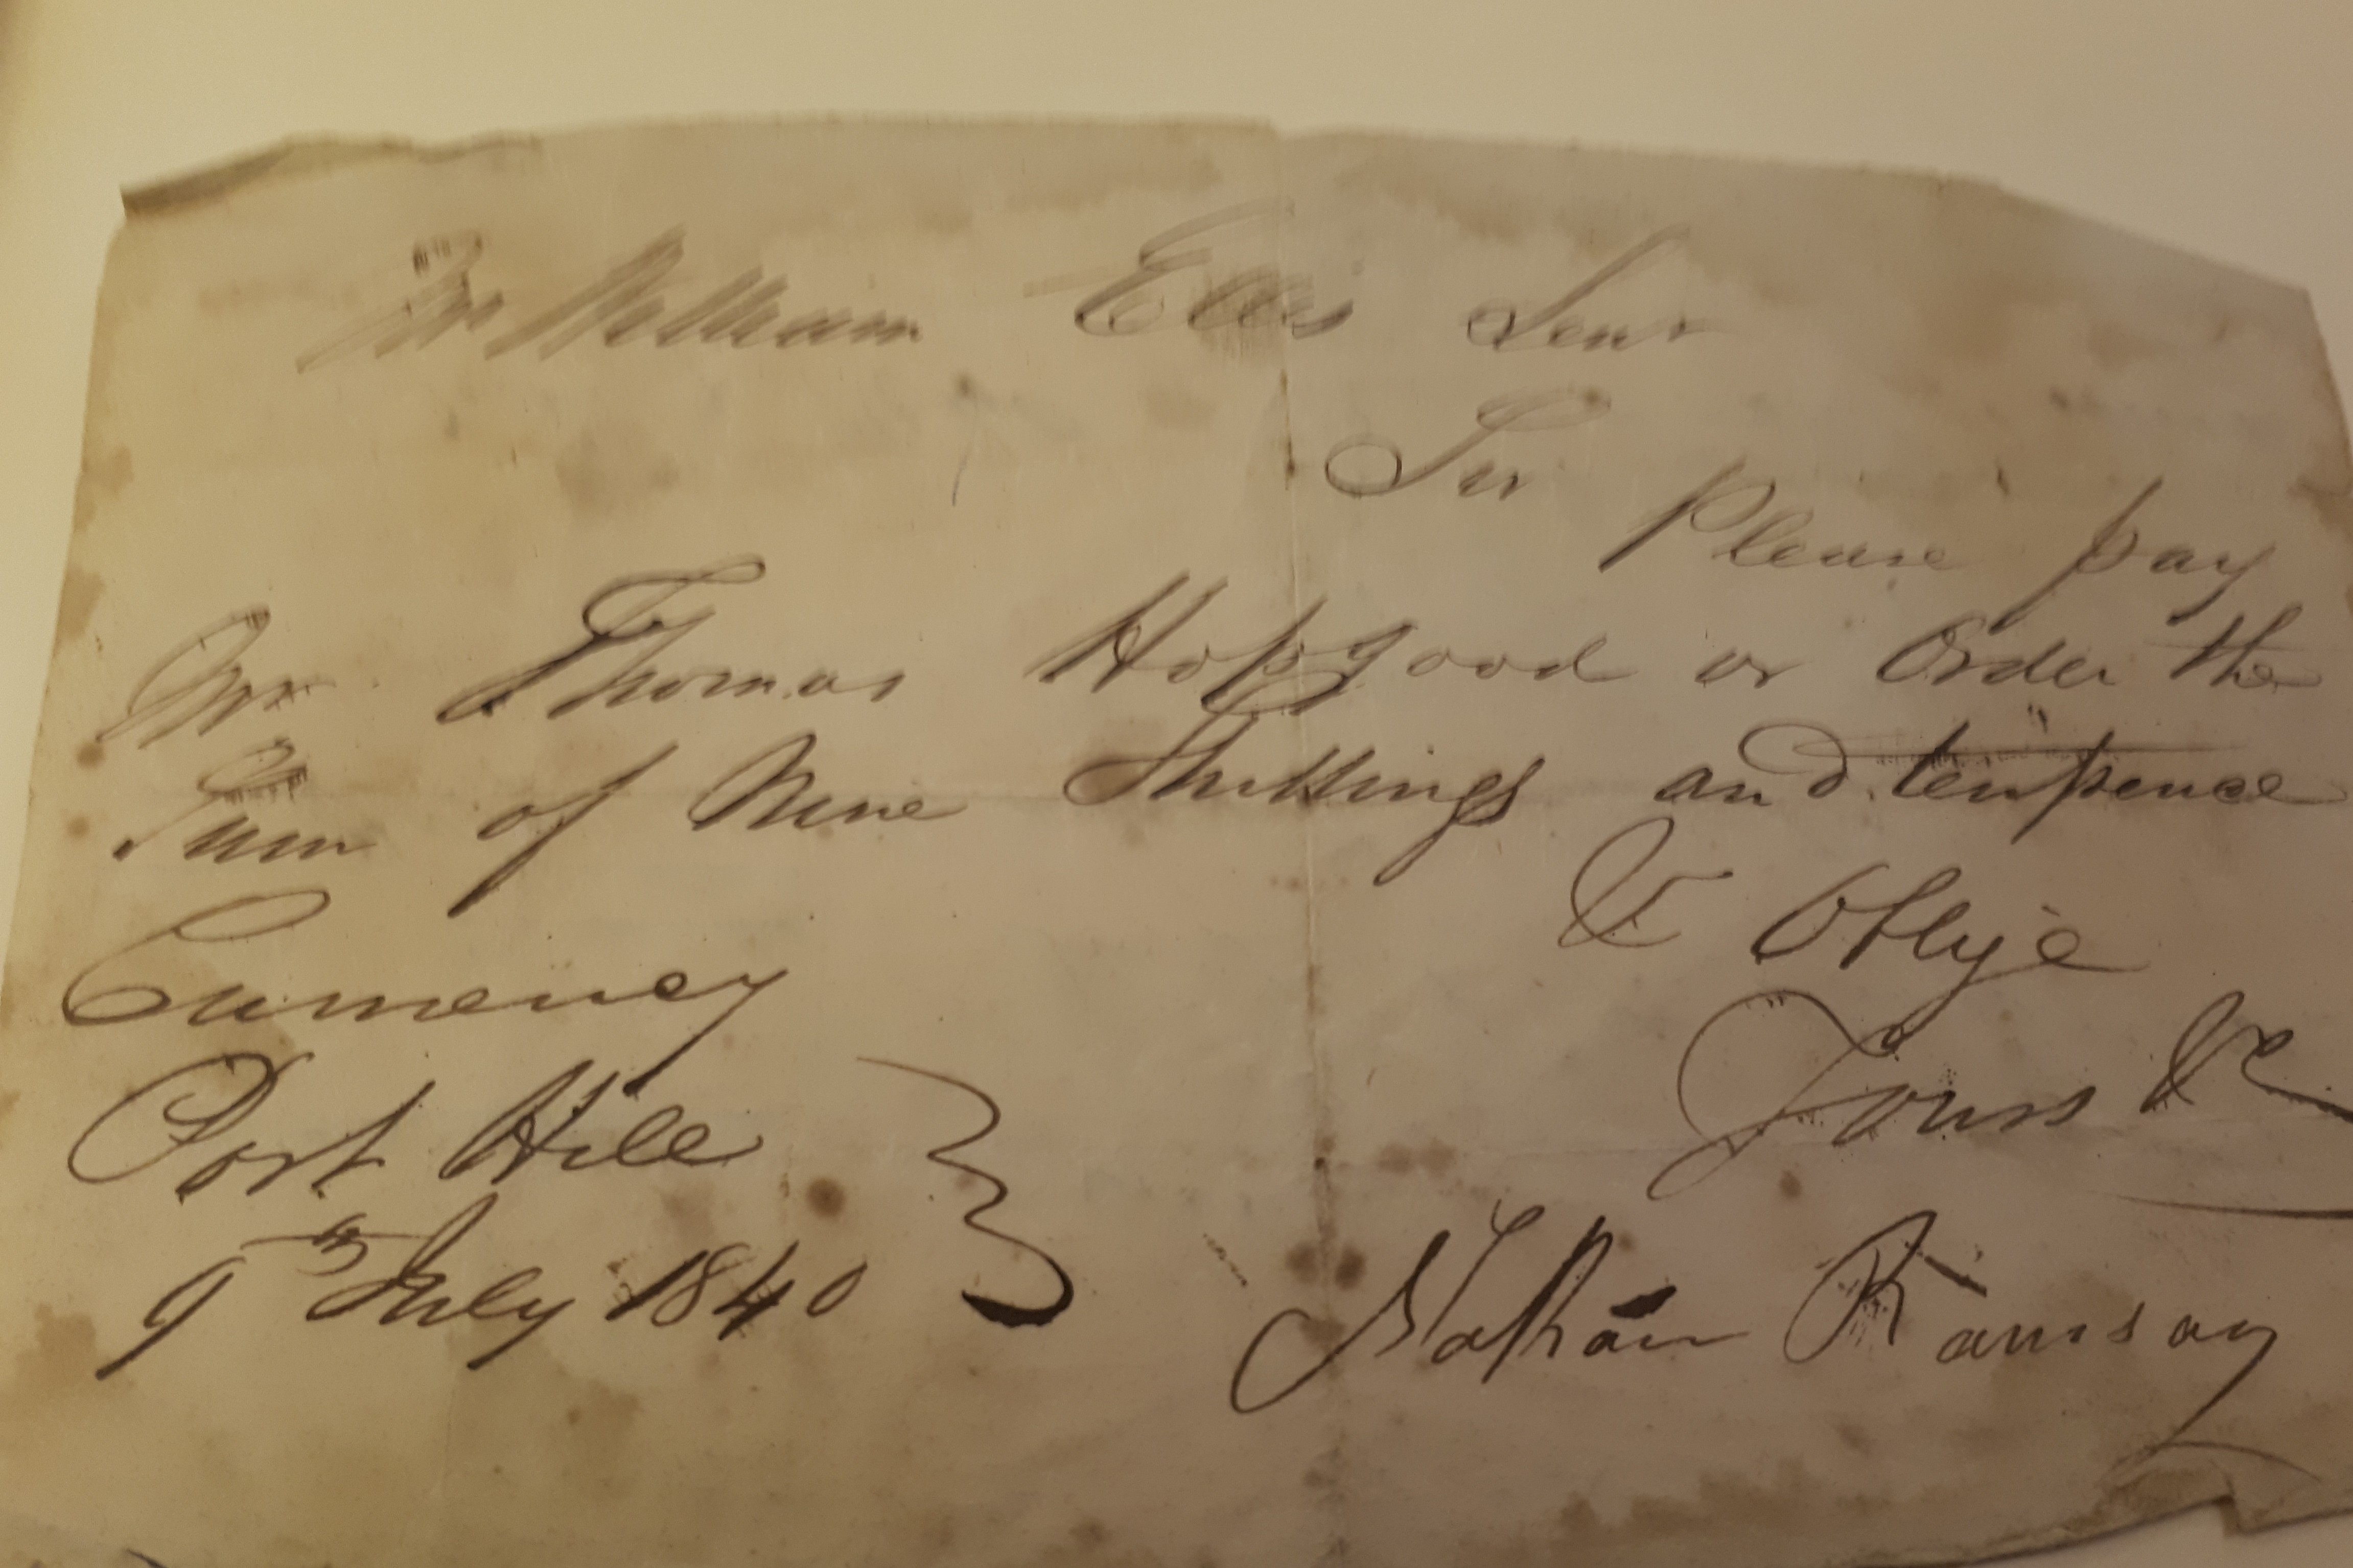 Mr William Ellis Senr
Sir Please pay
Mr Thomas Hopgood or Order the
Sum of Nine Shillings and tenpence
Currency
& Oblige
Yours &c
Port Hill
9th July 1840
Nathan Ramsay